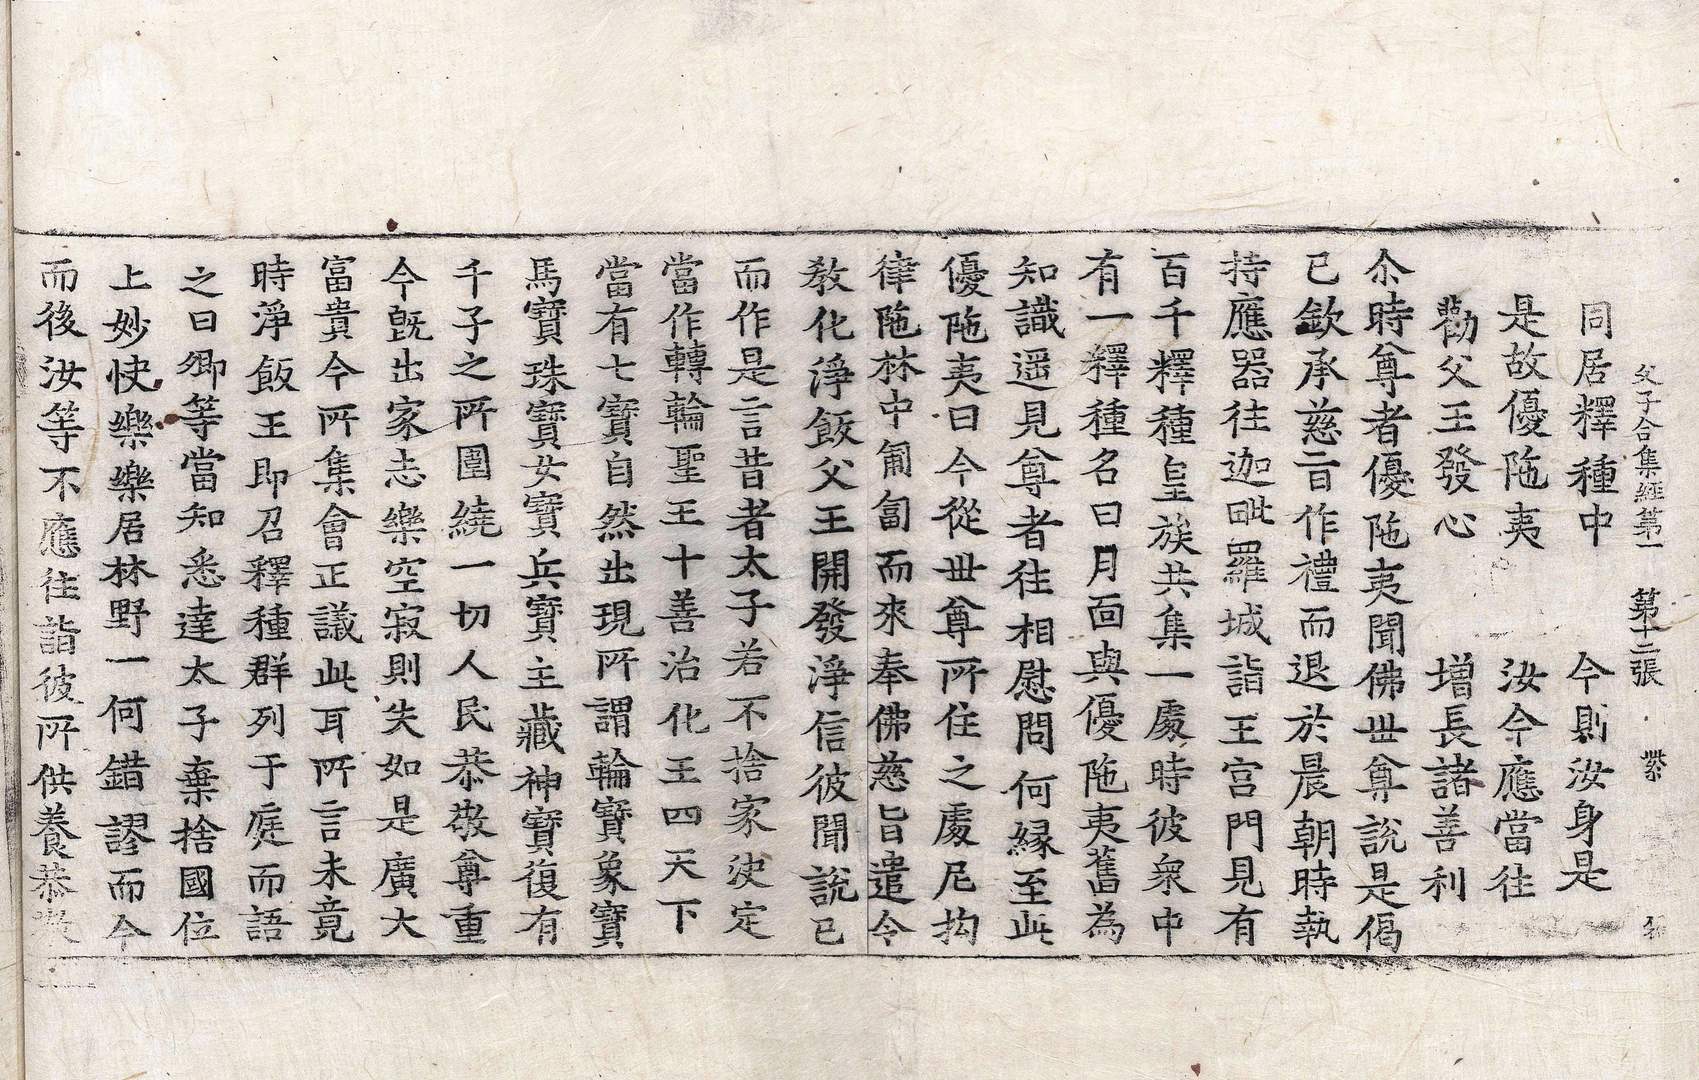 父子合集經第一 第十二張 縈
同居釋種中 今則汝身是
是故優陁夷 汝今應當往
勸父王發心 增長諸善利
尒時尊者優陁夷聞佛丗尊說是偈
已欽承慈旨作禮而退於晨朝時執
持應器往迦毗羅城詣王宮門見有
百千釋種皇族共集一處時彼衆中
有一釋種名曰月面與優陁夷舊為
知識遥見尊者往相慰問何緣至此
優陁夷曰今從丗尊所住之處尼拘
律陁林中匍匐而來奉佛慈旨遣令
教化淨飯父王開發淨信彼聞說已
而作是言昔者太子若不捨家決定
當作轉輪聖王十善治化王四天下
當有七寶自然出現所謂輪寶象寶
馬寶珠寶女寶兵寶主藏神寶復有
千子之所圍繞一切人民恭敬尊重
今旣出家志樂空寂則失如是廣大
富貴今所集會正議此耳所言未竟
時淨飯王即召釋種群列于庭而語
之曰卿等當知悉達太子棄捨國位
上妙快樂樂居林野一何錯謬而今
而後汝等不應往詣彼所供養恭敬